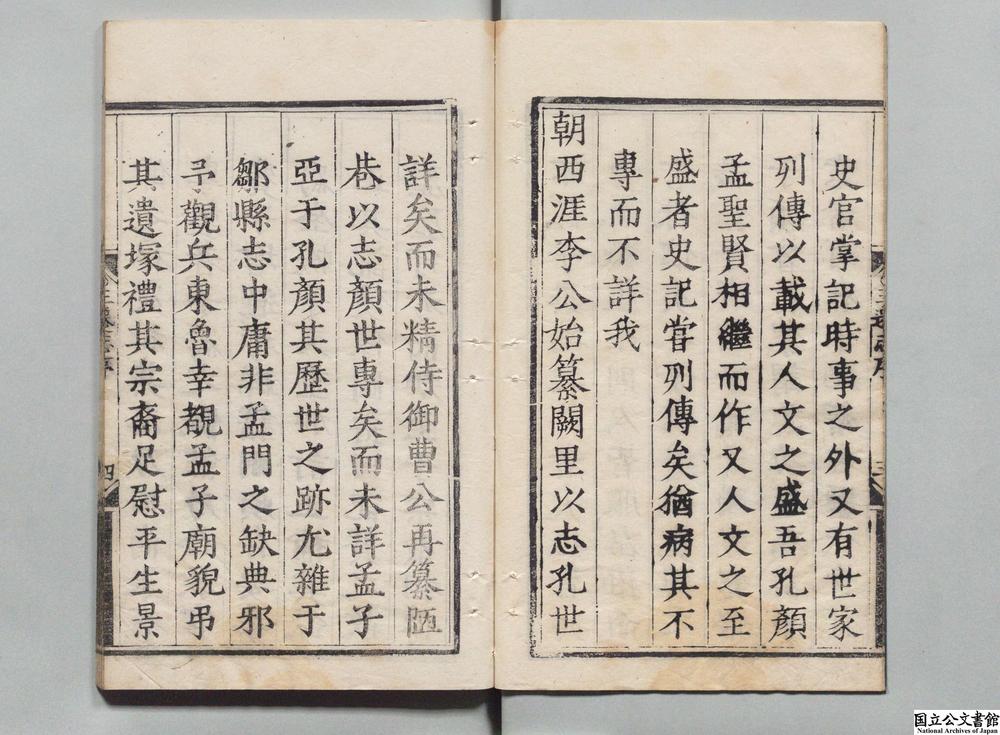 史官掌記時事之外又有世家
列傳以載其人文之盛吾孔顏
孟聖賢相繼而作又人文之至
盛者史記嘗列傳矣猶病其不
專而不詳我
朝西涯李公始纂闕里以志孔世
詳矣而未精侍御曹公再纂陋
巷以志顏世專矣而未詳孟子
亞于孔顏其歷世之跡尤雜于
鄒縣志中庸非孟門之缺典邪
予觀兵東魯幸覩孟子廟貌弔
其遺塚禮其宗裔足慰平生景
三
四
国立公文書館
National Archives of Japan